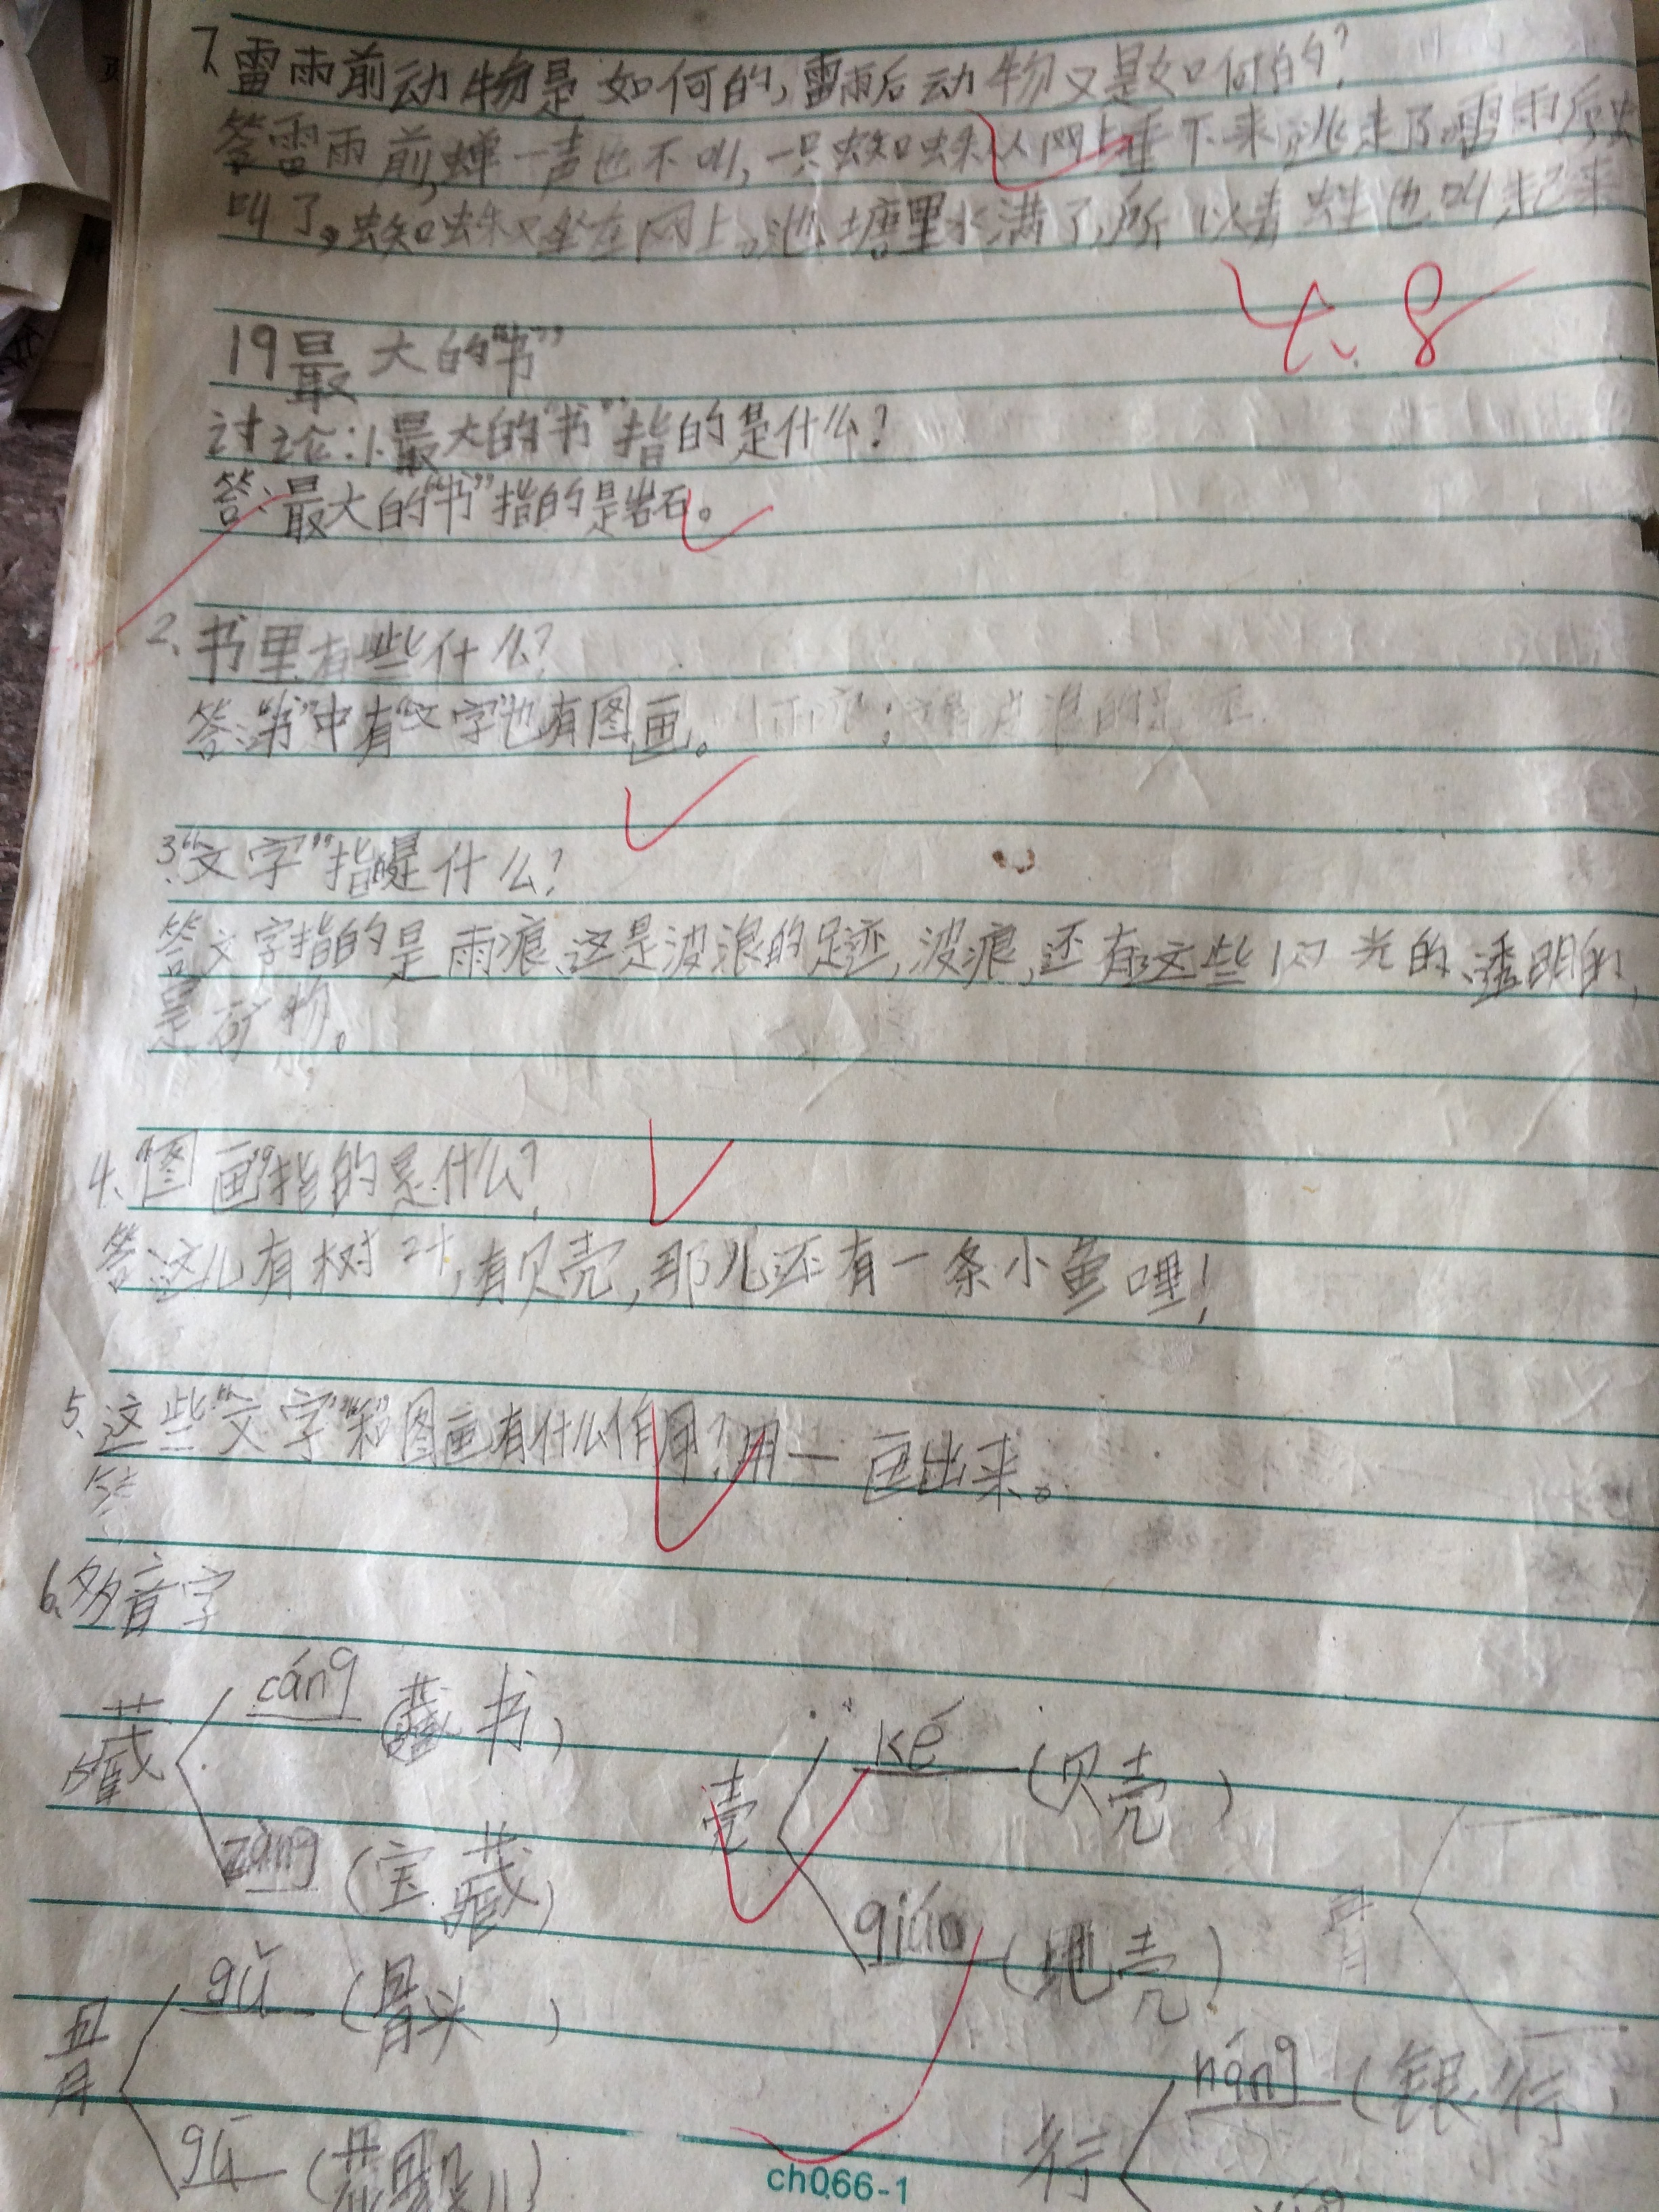 7、雷雨前动物是如何的,雷雨后动物又是如何的?
答雷雨前,蝉一声也不叫,一只蜘蛛从网上垂下来逃走了。雷雨后
叫了。蜘蛛又坐在网上。池塘里水满了,所以青蛙也叫起来
六、8
19最大的“书”
讨论:1、最大的“书”指的是什么?
答:最大的“书”指的是岩石。
2、书里有些什么?
答:“书”中有“文字”也有图画。
3、“文字”指的是什么?
答文字指的是雨痕、这是波浪的足迹,波痕,还有这些闪光的、透明的,
是矿物。
4、“图画”指的是什么?
答:这儿有树叶,有贝壳,那儿还有一条小鱼哩!
5、这些“文字”和图画有什么作用?用一画出来。
答
6、多音字
藏 cáng 藏书)
zàng (宝藏)
壳 ké (贝壳)
qiáo (地壳)
骨
骨 gǔ (骨头)
gū (花骨朵儿)
行 háng (银行)
ch066-1